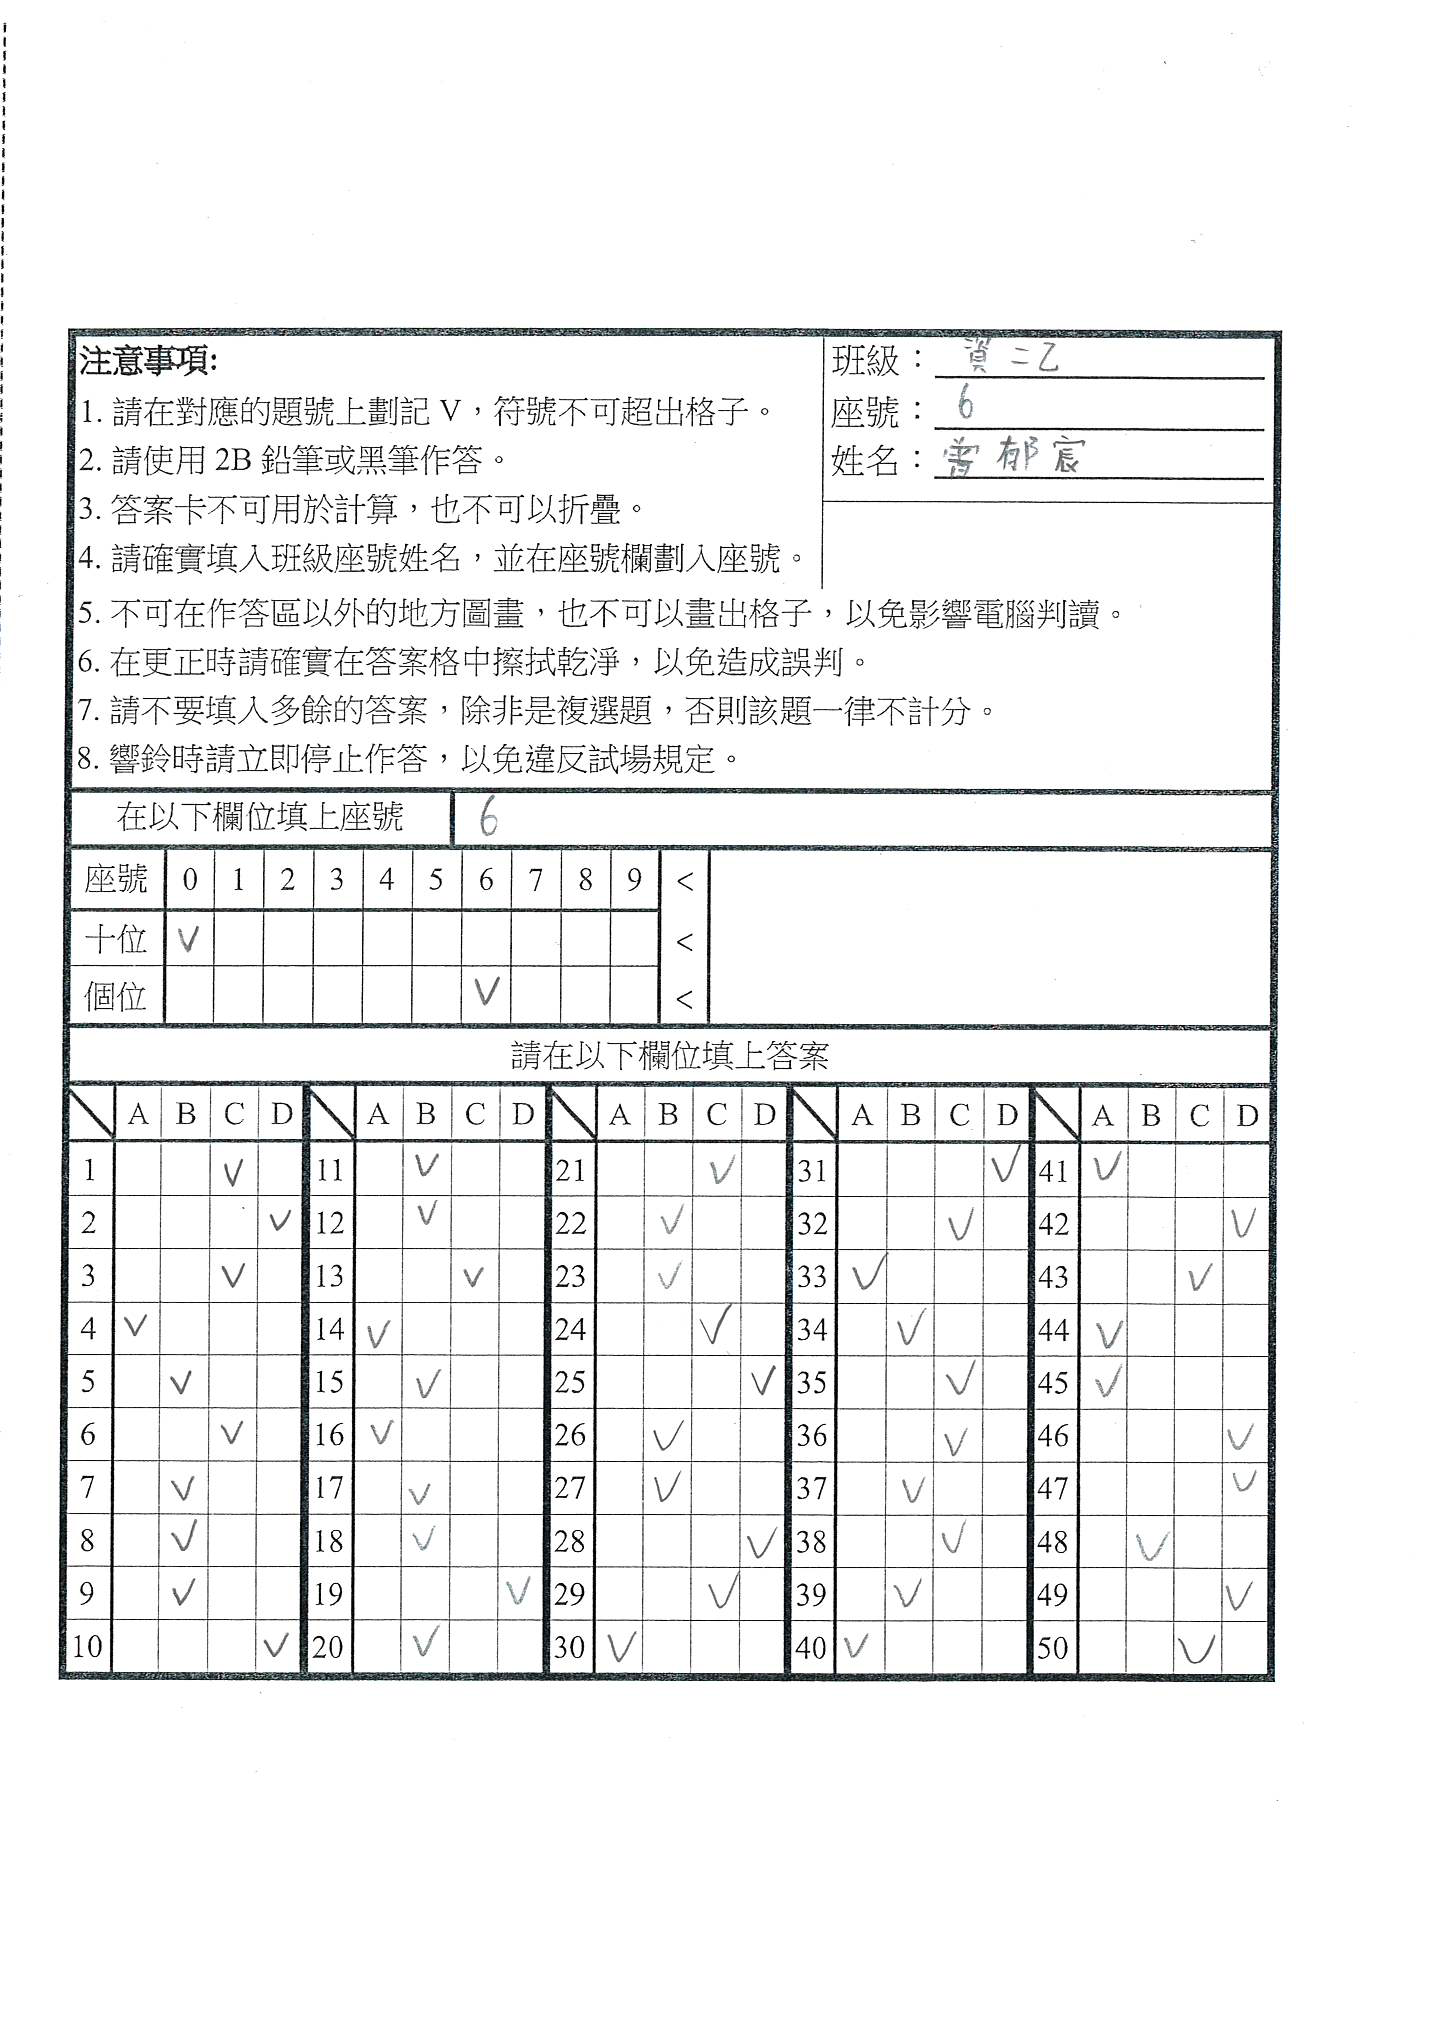 注意事項:
1. 請在對應的題號上劃記 V，符號不可超出格子。
2. 請使用 2B 鉛筆或黑筆作答。
3. 答案卡不可用於計算，也不可以折疊。
4. 請確實填入班級座號姓名，並在座號欄劃入座號。
班級：資二乙
座號：6
姓名：曾郁宸
5. 不可在作答區以外的地方圖畫，也不可以畫出格子，以免影響電腦判讀。
6. 在更正時請確實在答案格中擦拭乾淨，以免造成誤判。
7. 請不要填入多餘的答案，除非是複選題，否則該題一律不計分。
8. 響鈴時請立即停止作答，以免違反試場規定。
在以下欄位填上座號 6
座號 0 1 2 3 4 5 6 7 8 9 <
十位 V <
個位 V <
請在以下欄位填上答案
A B C D A B C D A B C D A B C D A B C D
1 V 11 V 21 V 31 V 41 V
2 V 12 V 22 V 32 V 42 V
3 V 13 V 23 V 33 V 43 V
4 V 14 V 24 V 34 V 44 V
5 V 15 V 25 V 35 V 45 V
6 V 16 V 26 V 36 V 46 V
7 V 17 V 27 V 37 V 47 V
8 V 18 V 28 V 38 V 48 V
9 V 19 V 29 V 39 V 49 V
10 V 20 V 30 V 40 V 50 V